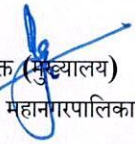 क्त (मुख्यालय)
महानगरपालिका